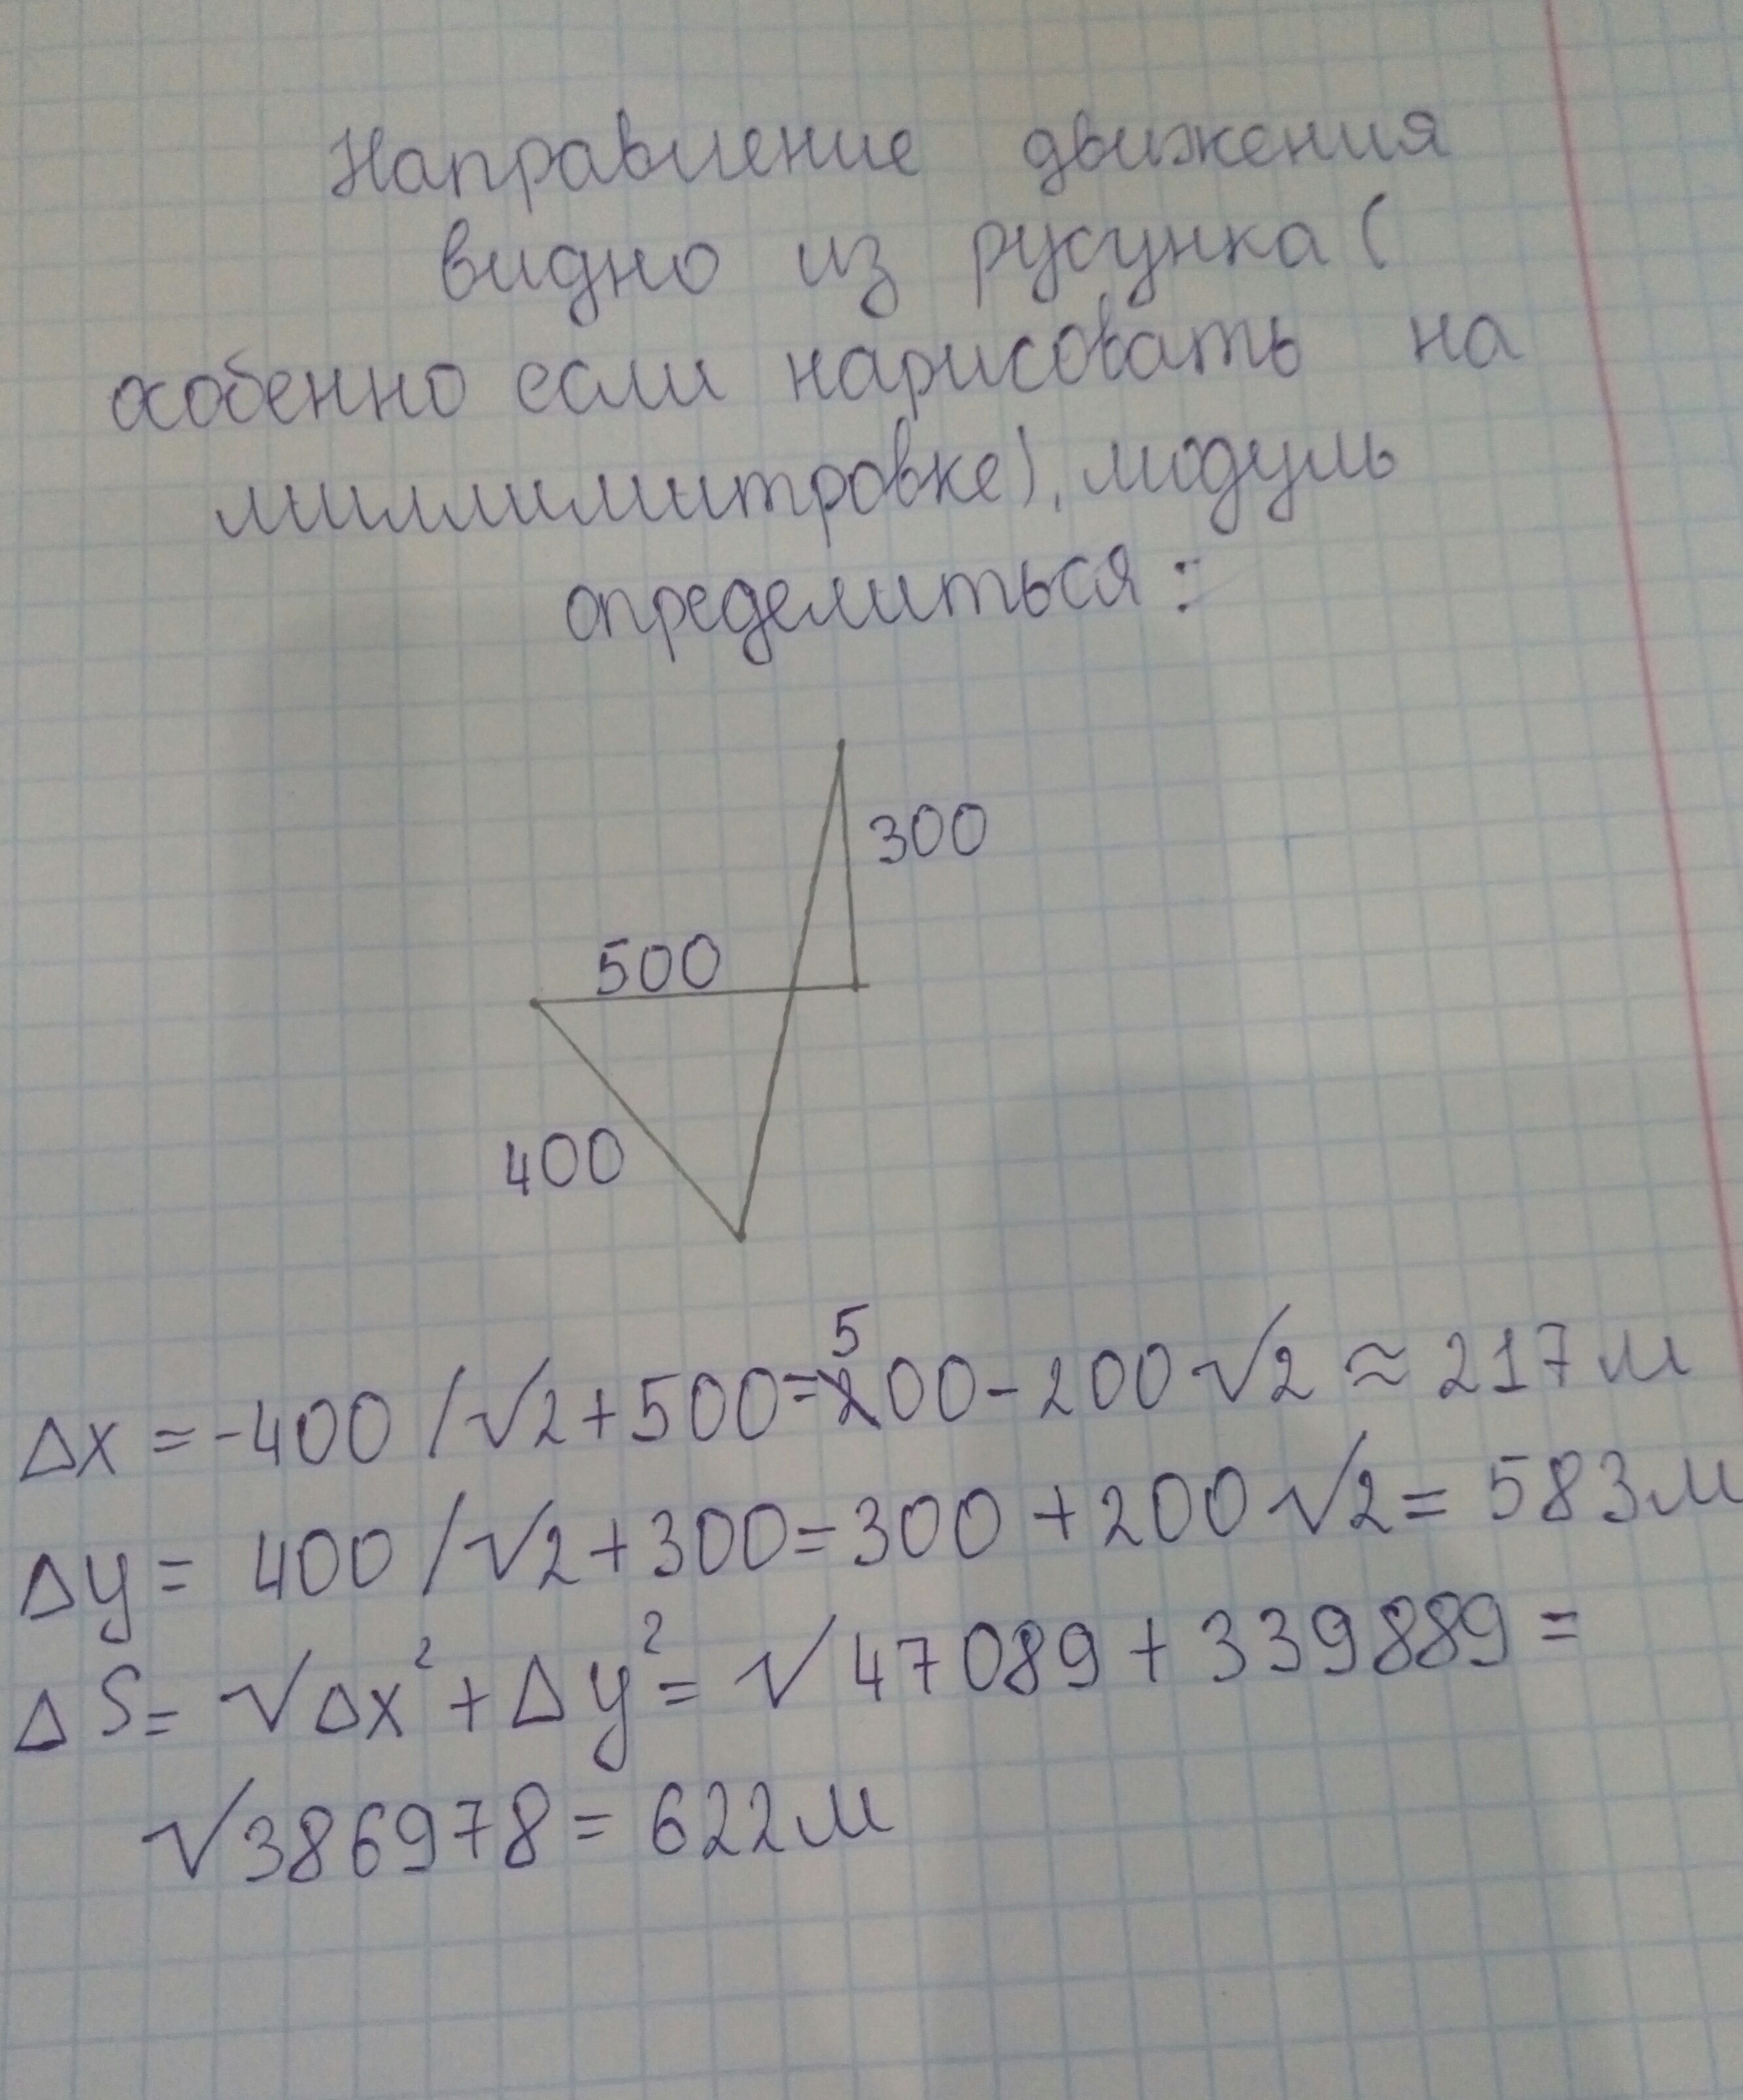 Направление движения
видно из русунка (
особенно если нарисовать на
миллимитровке), модуль
определиться :
300
500
400
Δx = -400 /√2 + 500 = 500 - 200 √2 ≈ 217 м
Δy = 400 /√2 + 300 = 300 + 200 √2 = 583 м
Δ S = √Δx² + Δy² = √47089 + 339889 =
√386978 = 622 м